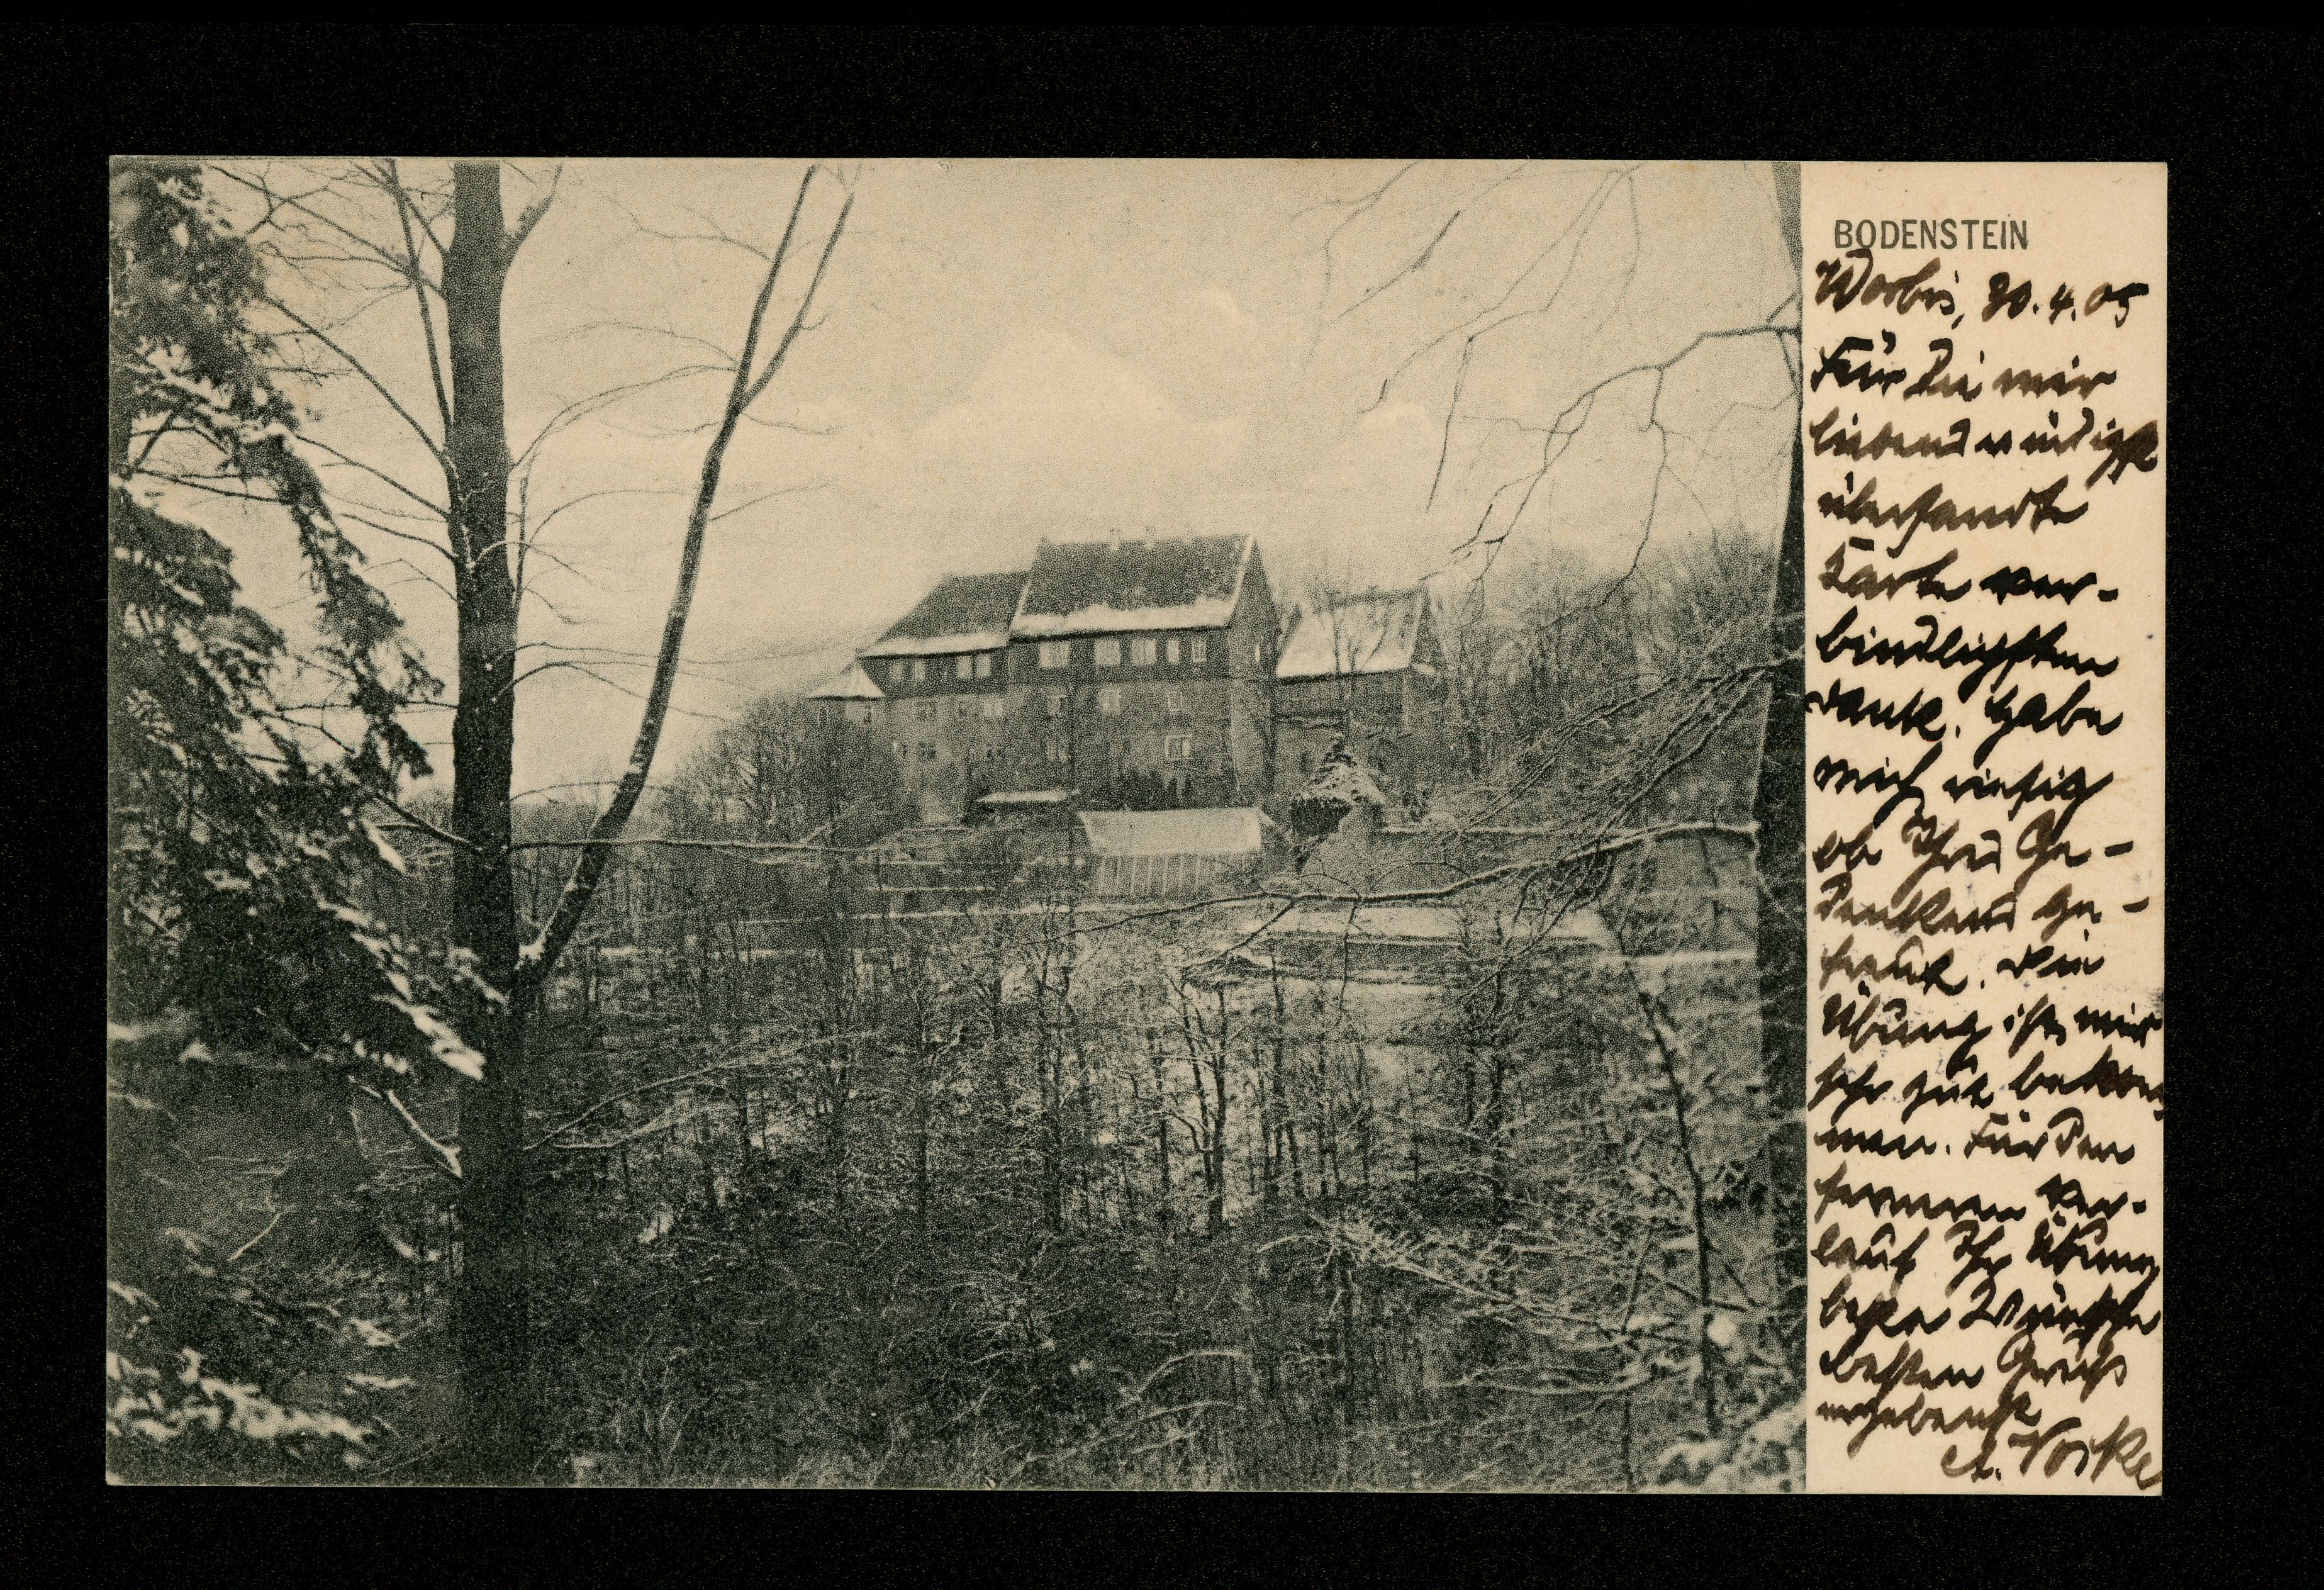 BODENSTEIN
Worbis, 30.4.05
Für die mir
liebenswürdigst
übersandte
Karte ver-
bindlichsten
Dank. Habe
mich riesig
ob Ihres Ge-
denkens ge-
freut. Die
Übung ist mir
sehr gut bekom-
men. Für den
ferneren Ver-
lauf Ihr Übung
beste Wünsche
besten Gruß
ergebenst
A.